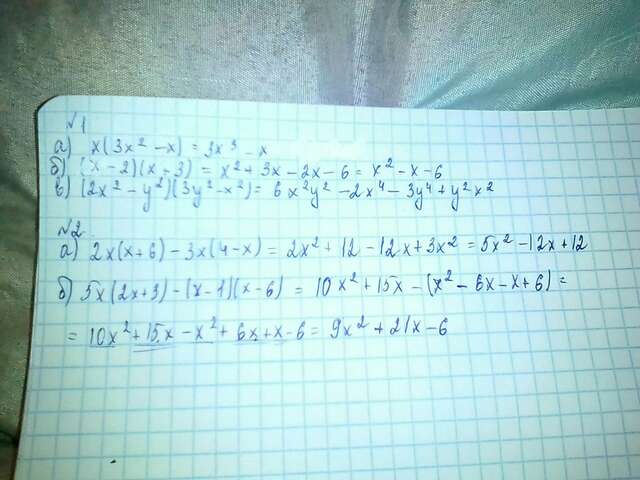 №1
а) x(3x² - x) = 3x³ - x
б) (x - 2)(x - 3) = x² + 3x - 2x - 6 = x² - x - 6
в) (2x² - y²)(3y² - x²) = 6x²y² - 2x⁴ - 3y⁴ + y²x²
№2
а) 2x(x+6) - 3x(4-x) = 2x² + 12 - 12x + 3x² = 5x² - 12x + 12
б) 5x(2x+3) - (x-1)(x-6) = 10x² + 15x - (x² - 6x - x + 6) =
= 10x² + 15x - x² + 6x + x - 6 = 9x² + 21x - 6